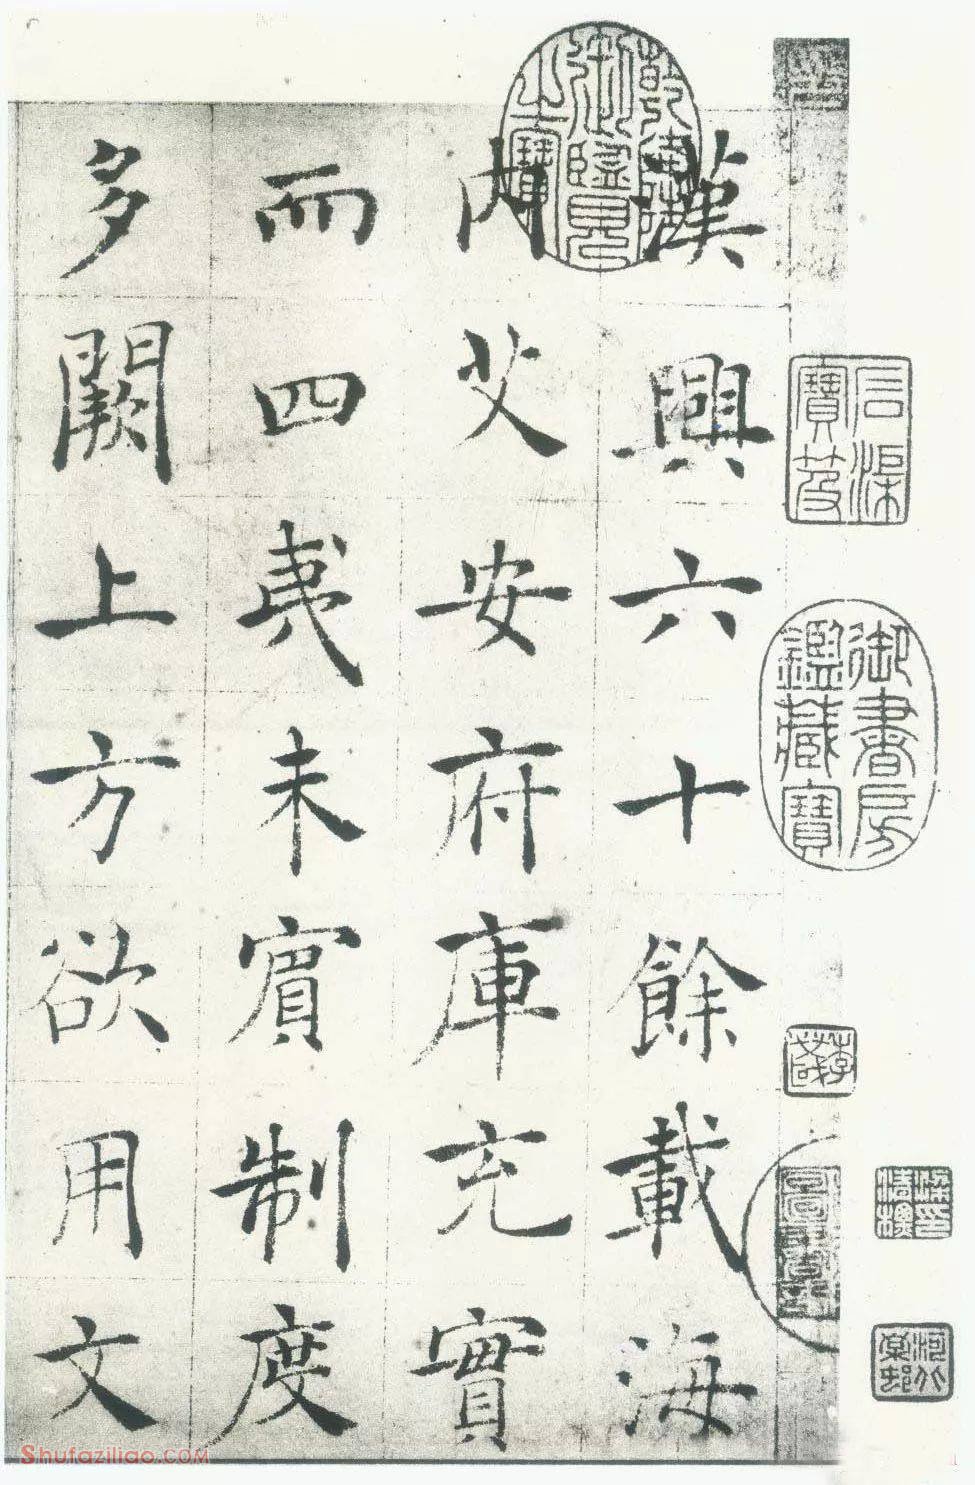 漢興六十餘載海
内艾安府庫充實
而四夷未賓制度
多闕上方欲用文
乾隆御覽之寶
石渠寶笈
御書房鑑藏寶
Shufaziliao.COM